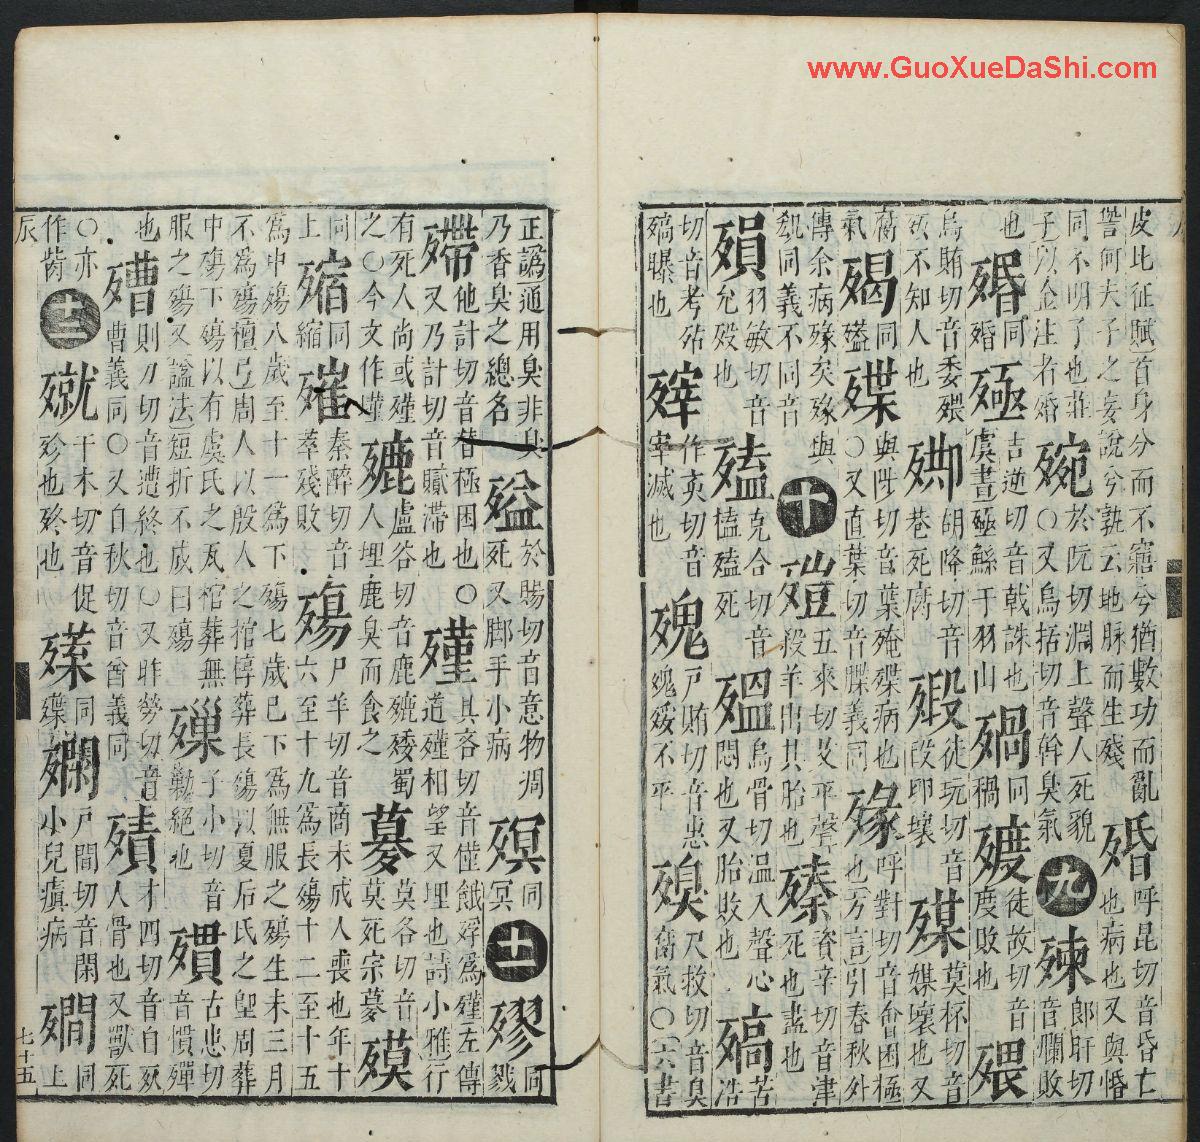 皮比征賦首身分而不寤今猶數功而亂
訾何夫子之妄說兮孰云地脉而生殘
殙
呼昆切音昏亡
也病也又與惛
同不明了也莊
子以金注者殙
於阮切淵上聲人死貌
○又烏括切音斡臭氣
九
郎旰切
音爛敗
也
同
殙
殛
吉逆切音戟誅也
虞書殛鯀于羽山
同
禍
徒故切音
度敗也
烏賄切音委
不知人也
胡降切音
巷死腐
徒玩切音
段卵壞
莫杯切音
媒壞也又
腐
氣
同
殜
切音葉殗殜病也
○又直葉切音牒義同
呼對切音會困極
也方言引春秋外
傳余病
同義不同音
十
五來切艾平聲
殺羊出其胎也
殝
資辛切音津
死也盡也
殞
羽敏切音
允歿也
克合切音
榼
殟
烏骨切溫入聲心
悶也又胎敗也
苦
浩
切音考殆
曝也
作亥切音
宰滅也
尸賄切音患
不平
殠
尺救切音臭
腐氣○六書
正譌通用臭非臭
乃香臭之總名
於賜切音意物凋
死又脚手小病
同
冥
十一
同
戮
殢
他計切音替極困也○
又乃計切音膩滯也
殣
具吝切音僅餓殍爲殣左傳
道殣相望又埋也詩小雅行
有死人尚或殣
之○今文作墐
盧谷切音鹿
人埋鹿臭而食之
莫各切音
莫死宗
同
上
同
縮
秦醉切音
萃殘敗
殤
尸羊切音商未成人喪也年十
六至十九爲長殤十二至十五
爲中殤八歲至十一爲下殤七歲已下爲無服之殤生未三月
不爲殤檀弓周人以殷人之棺椁葬長殤以夏后氏之堲周葬
中殤下殤以有虞氏之瓦棺葬無
服之殤又諡法短折不成曰殤
子小切音
勦絕也
古患切
音慣殫
也
則刀切音遭終也○又昨勞切音
曹義同○又自秋切音酋義同
才四切音自
人骨也又獸死
○亦
作胔
十二
于木切音促
殄也終也
同
尸間切音閑
小兒瘨病
同
上
辰
七十五
www.GuoXueDaShi.com